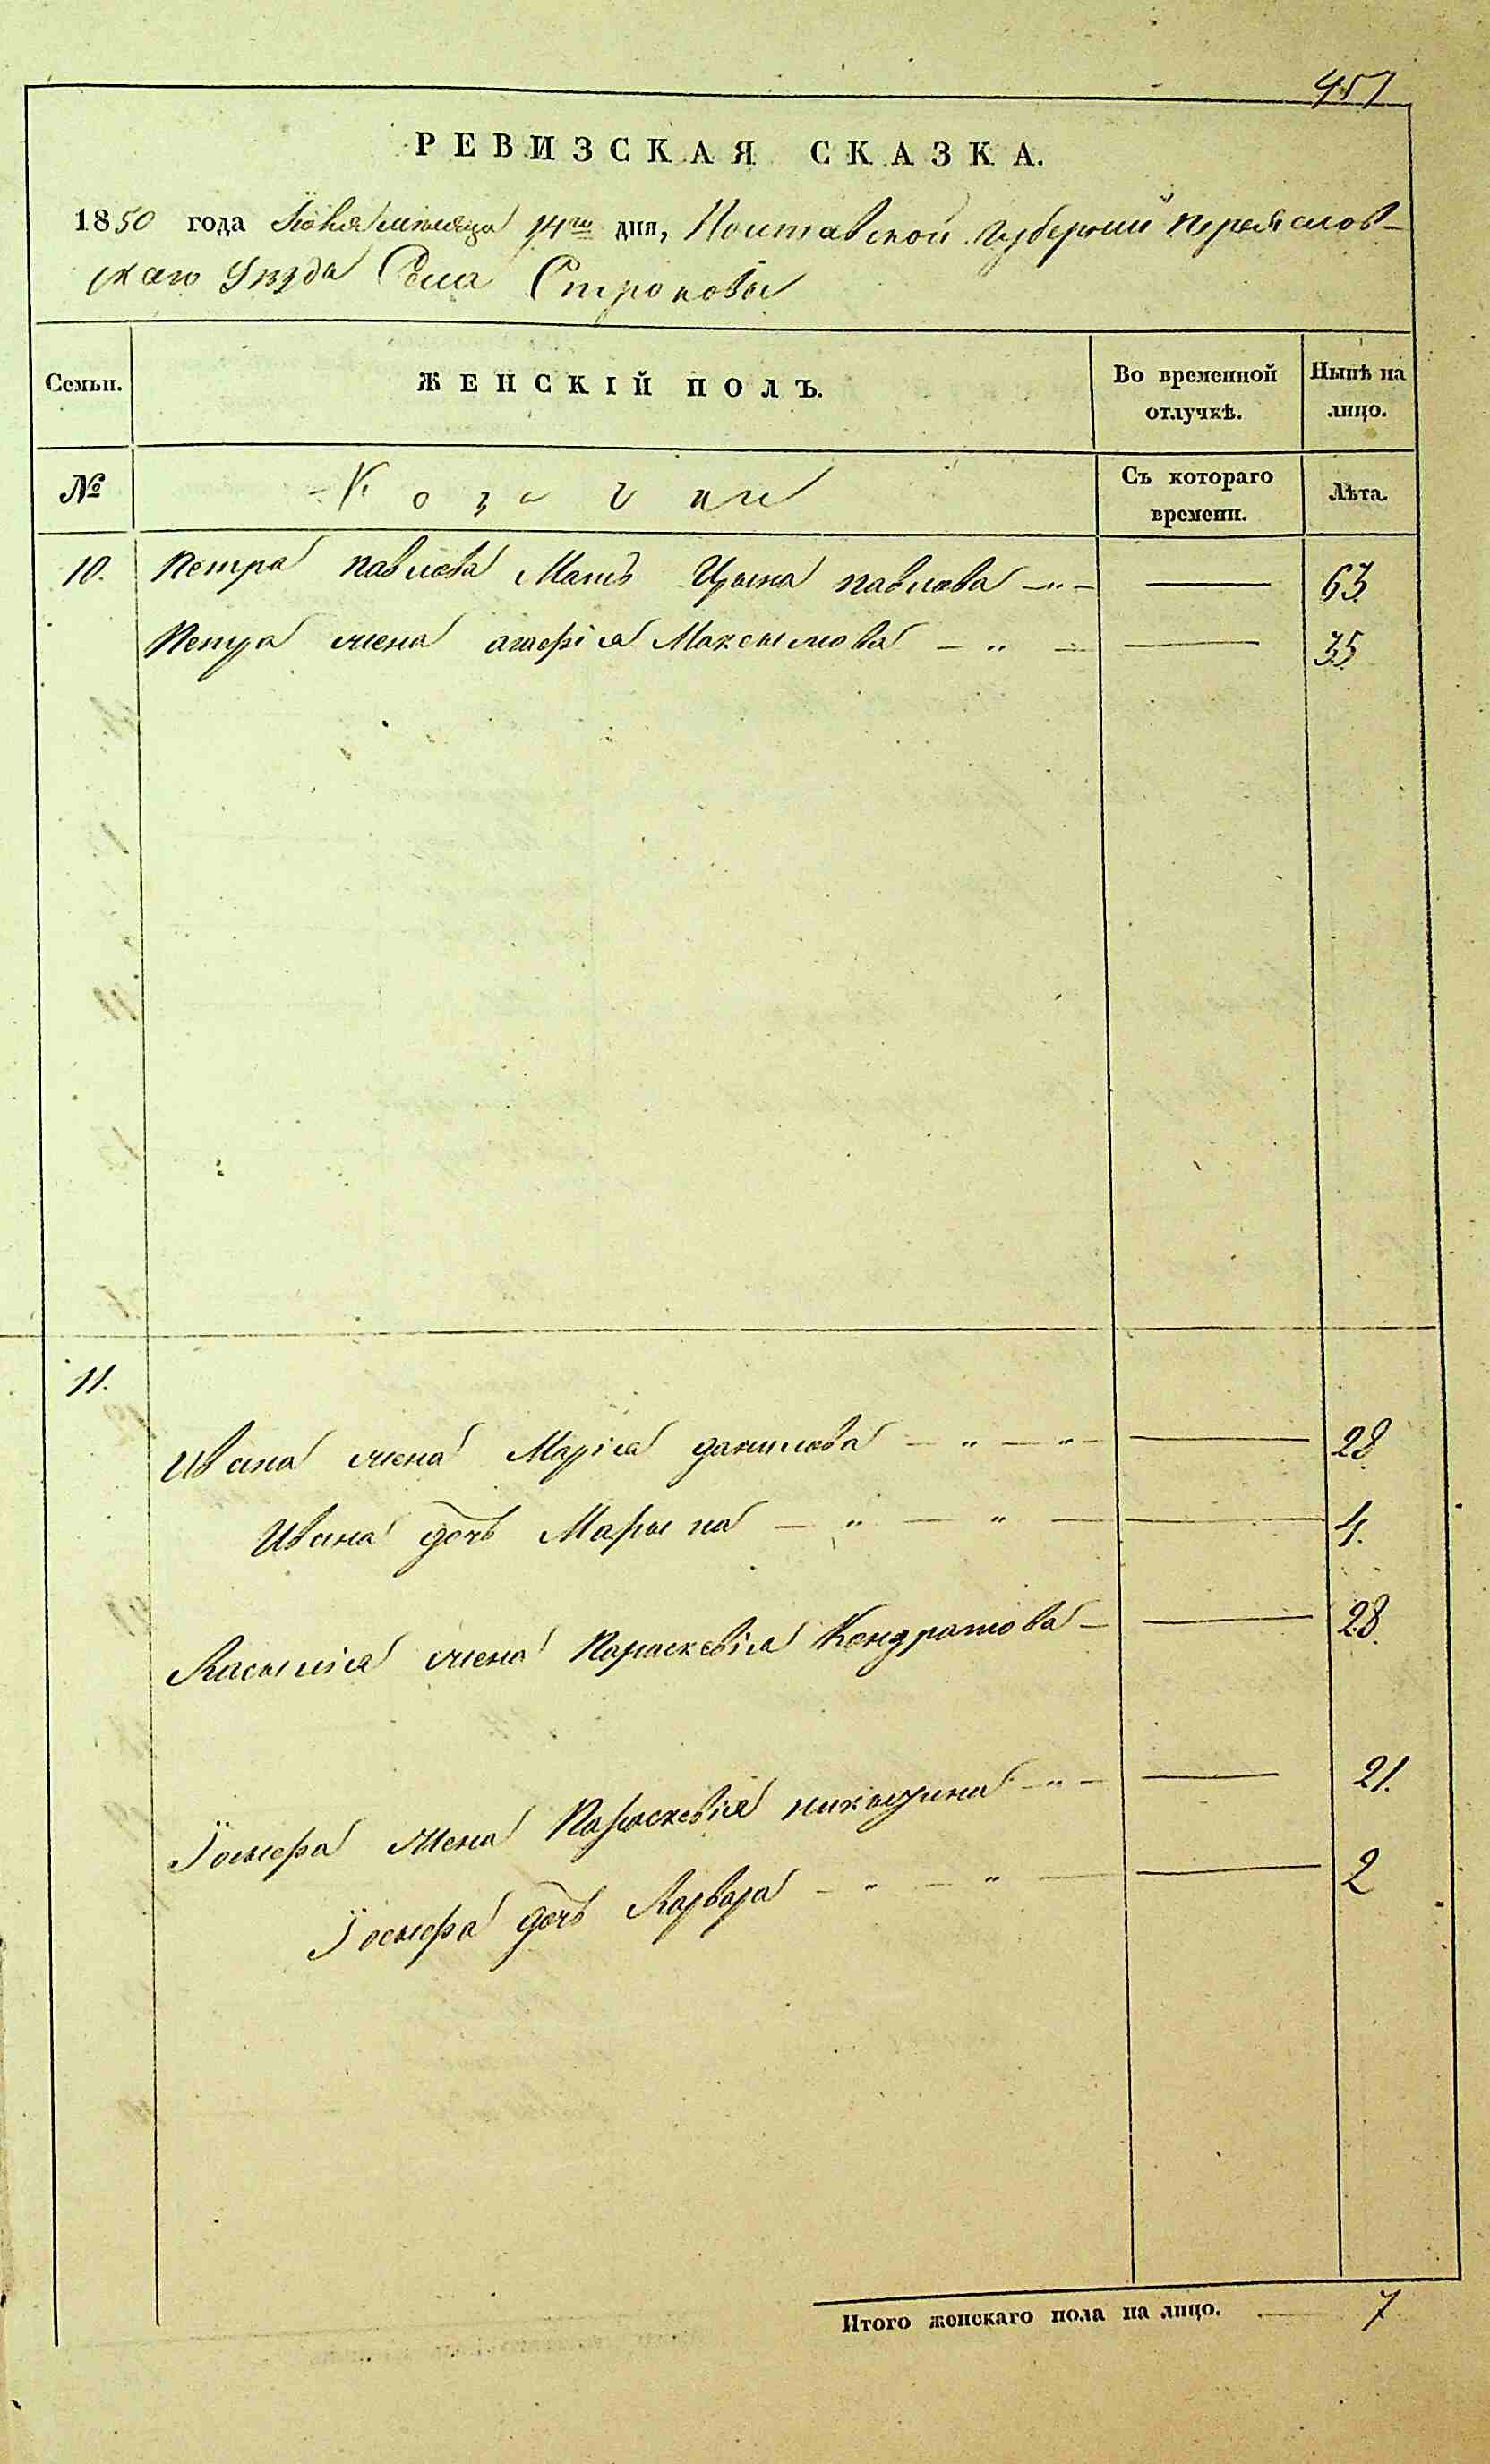 457
РЕВИЗСКАЯ СКАЗКА.
1850 года мѣсяца 14го дня, Полтавской Губерніи Переяслов-
скаго Уѣзда Села Строковы
Семьи. ЖЕНСКІЙ ПОЛЪ. Во временной отлучкѣ. Нынѣ на лицо.
№ Козачки Съ котораго времени. Лѣта.
10. Петра Павлова Мать Ирына Павлова —"— — 63
Петра жена Максымова — " — — 35
11.
Ивана жена Марія Данилова — " — " — — 28
Ивана дочь Марына — " — " — — 4.
Василія жена Параскевія Кондратова — — 28
Іосыфа жена Параскевія —"— — 21.
Іосыфа дочь Варвара — " — " — — 2
Итого женскаго пола на лицо. — 7